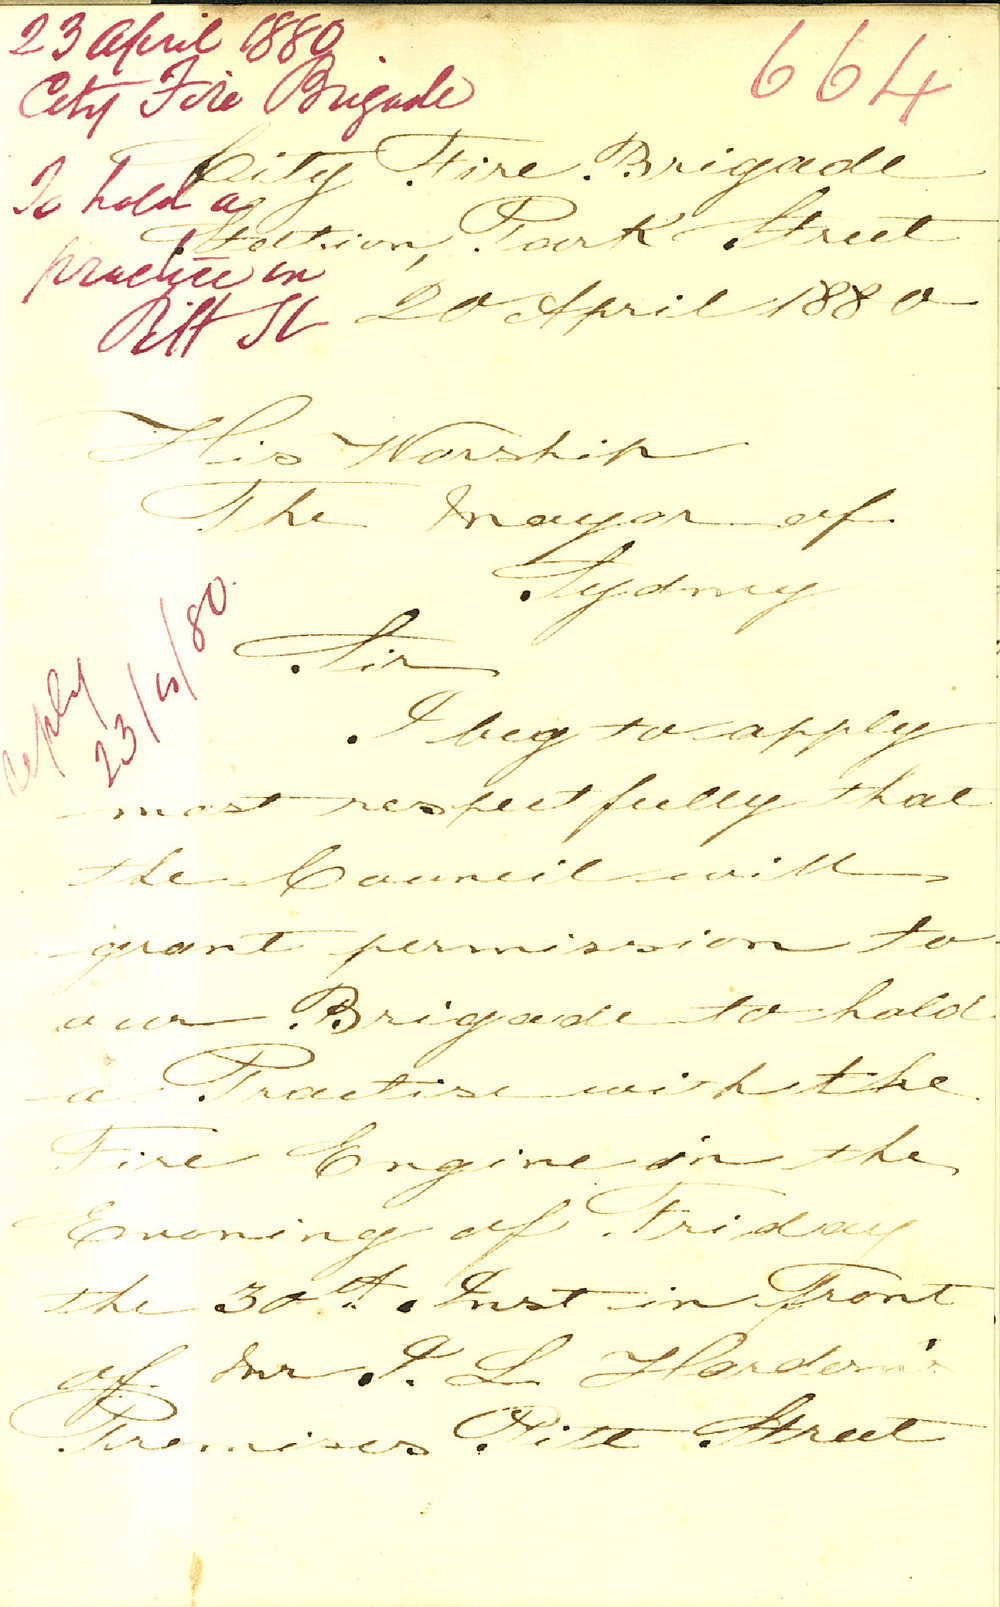 23 April 1880
City Fire Brigade
664
To hold a
practice in
Pitt St
City Fire Brigade
Station, Park Street
20 April 1880
His Worship
The Mayor of
Sydney
reply
23/4/80
Sir
I beg to apply
most respectfully that
the Council will
grant permission to
our Brigade to hold
a Practise with the
Fire Engine in the
Evening of Friday
the 30th. Inst in front
of Mr. L. Hordern's
Premises Pitt Street